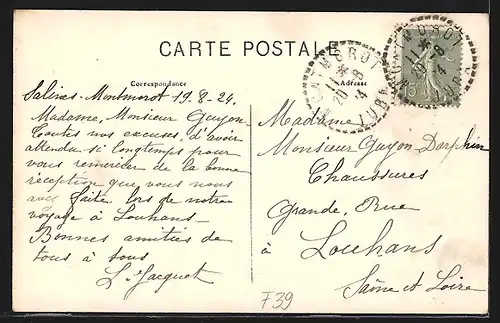 CARTE POSTALE
Correspondance
Adresse
Salines-Montmorot 19.8-24.
Madame, Monsieur Guyon.
Toutes nos excuses, d'avoir
attendu si longtemps pour
vous remercier de la bonne
réception que vous nous
avez faite lors de notre
voyage à Louhans-
Bonnes amitiés de
tous à tous
L. Jacquet
MONTMOROT
JURA
20 - 8
24
MONTMOROT
JURA
20 - 8
24
15
Madame,
Monsieur Guyon-Dorphin
Chaussures
Grande, Rue
à Louhans
Saône et Loire
F39